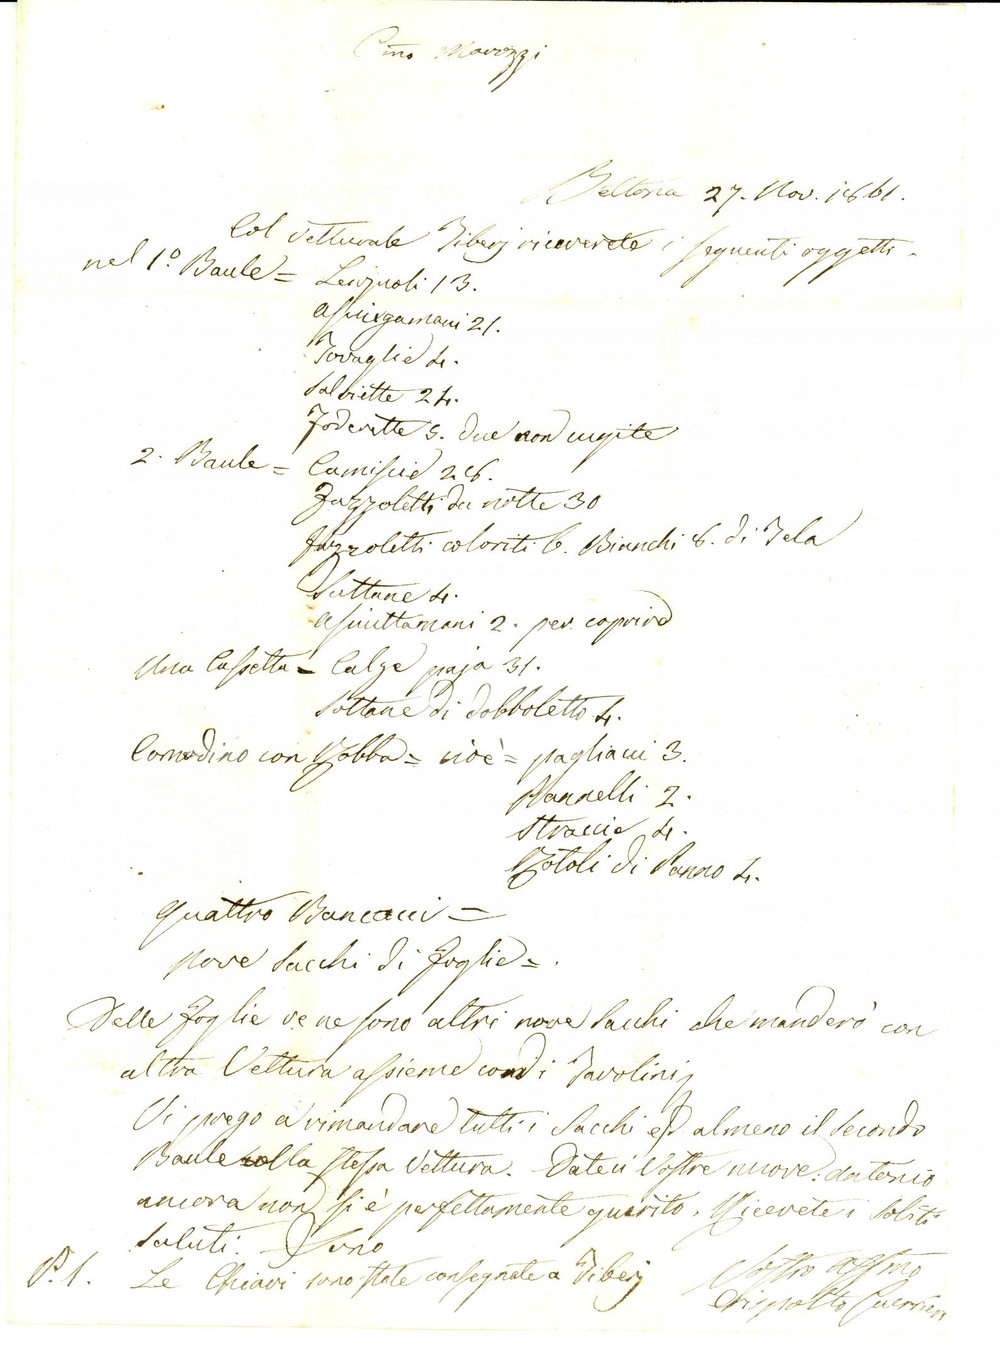 C.mo Marozzi
Bettona 27. Nov. 1861.
Col Vetturale Tiberj riceverete i seguenti oggetti.
nel 1º Baule = Lenzuoli 13.
asciugamani 21.
Tovaglie 4.
Salviette 24.
Foderette 5. due non cugite
2. Baule = Camiscie 28.
Fazzoletti da notte 30
fazzoletti coloriti 6. Bianchi 8. di Tela
Sottane 4.
asciuttamani 2. per coprire
Una Cassetta = Calze paja 31.
Sottane di dobboletto 4.
Comodino con Robba = cioè = pagliacci 3.
Pannelli 2.
Straccie 4.
Rotoli di Panno 4.
Quattro Bancacci =
nove Sacchi di Foglie = .
Delle Foglie ve ne sono altri nove Sacchi che manderò con
altra Vettura assieme con i Tavolini
Vi prego a rimandare tutti i Sacchi ed almeno il secondo
Baule colla stessa Vettura. Dateci Vostre nuove: Antonio
ancora non si è perfettamente guarito. Ricevete i soliti
saluti. Sono
P.S. Le Chiavi sono state consegnate a Tiberj
Vostro affmo
Crispolto Guerrieri